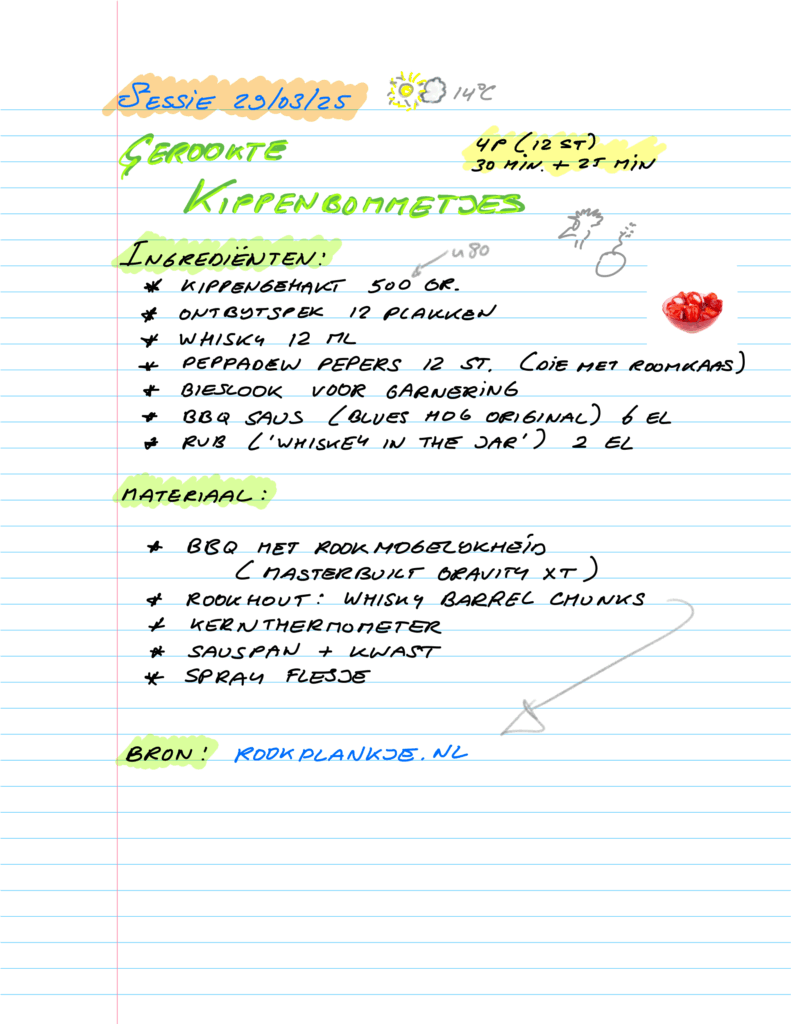 SESSIE 29/03/25 14°C
GEROOKTE
4P (12 ST)
30 MIN. + 25 MIN
KIPPENBOMMETJES
INGREDIËNTEN:
480
* KIPPENGEHAKT 500 GR.
* ONTBIJTSPEK 12 PLAKKEN
* WHISKY 12 ML
* PEPPADEW PEPERS 12 ST. (DIE MET ROOMKAAS)
* BIESLOOK VOOR GARNERING
* BBQ SAUS (BLUES HOG ORIGINAL) 6 EL
* RUB ('WHISKEY IN THE JAR') 2 EL
MATERIAAL:
* BBQ MET ROOKMOGELIJKHEID
(MASTERBUILT GRAVITY XT)
* ROOKHOUT: WHISKY BARREL CHUNKS
* KERNTHERMOMETER
* SAUSPAN + KWAST
* SPRAY FLESJE
BRON: ROOKPLANKJE.NL